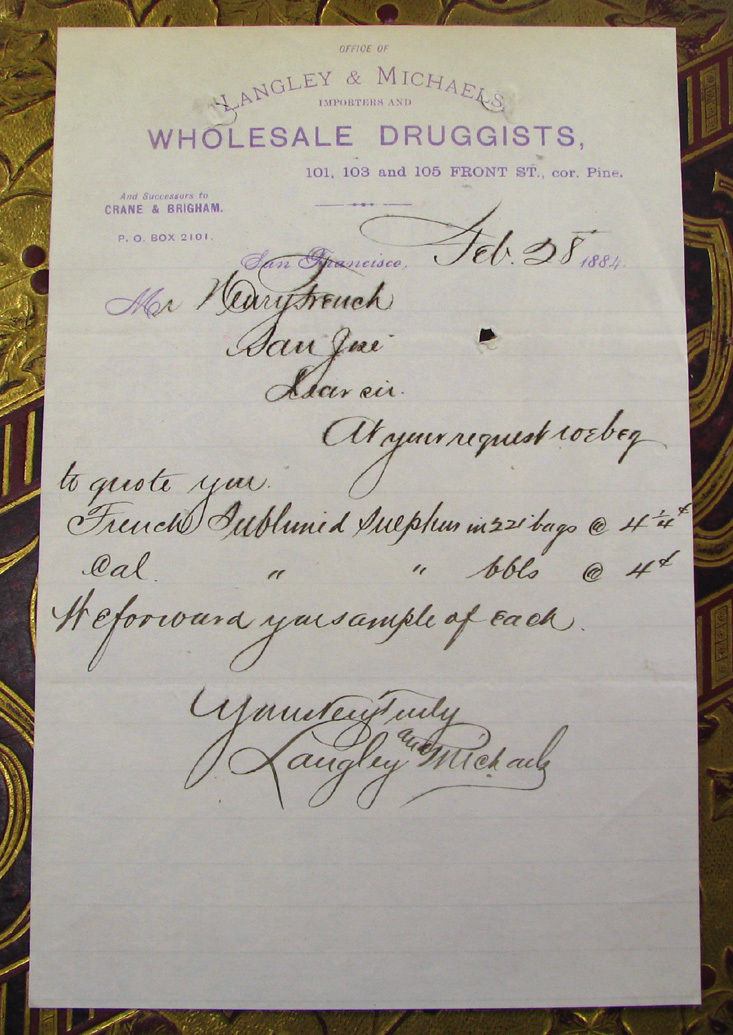 OFFICE OF
LANGLEY & MICHAELS,
IMPORTERS AND
WHOLESALE DRUGGISTS,
101, 103 and 105 FRONT ST., cor. Pine.
And Successors to
CRANE & BRIGHAM.
P. O. BOX 2101.
San Francisco, Feb. 28 1884.
Mr Henry French
San José
Dear sir.
At your request we beg
to quote you.
French Sublimed Sulphur in 221 bags @ 4 1/4 ¢
Cal. " " bbls @ 4 ¢
We forward you sample of each.
Yours very Truly
Langley and Michaels